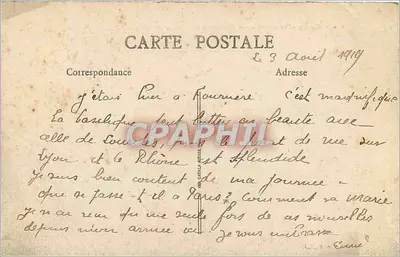 CARTE POSTALE
Le 3 Avril 1919
Correspondance Adresse
j'étais hier à Fourvière c'est magnifique
La basilique peut lutter en beauté avec
celle de Lourdes, puis le point de vue sur
Lyon et le Rhône est splendide
je suis bien content de ma journée -
que se passe-t-il à Paris? comment va Marie
je n'ai reçu qu'une seule fois de ses nouvelles
depuis mon arrivée ici je vous embrasse
CPARHIL